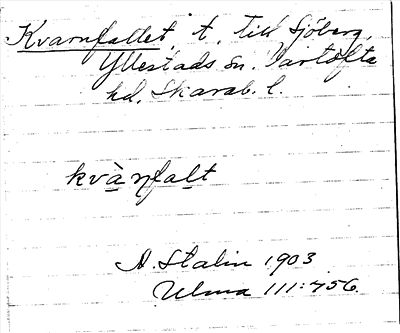 Kvarnfallet, t. till Sjöberg,
Yllestads sn. Vartofta
hd. Skarab. l.
kvànfalt
A. Stalin 1903
Ulma 111:456.